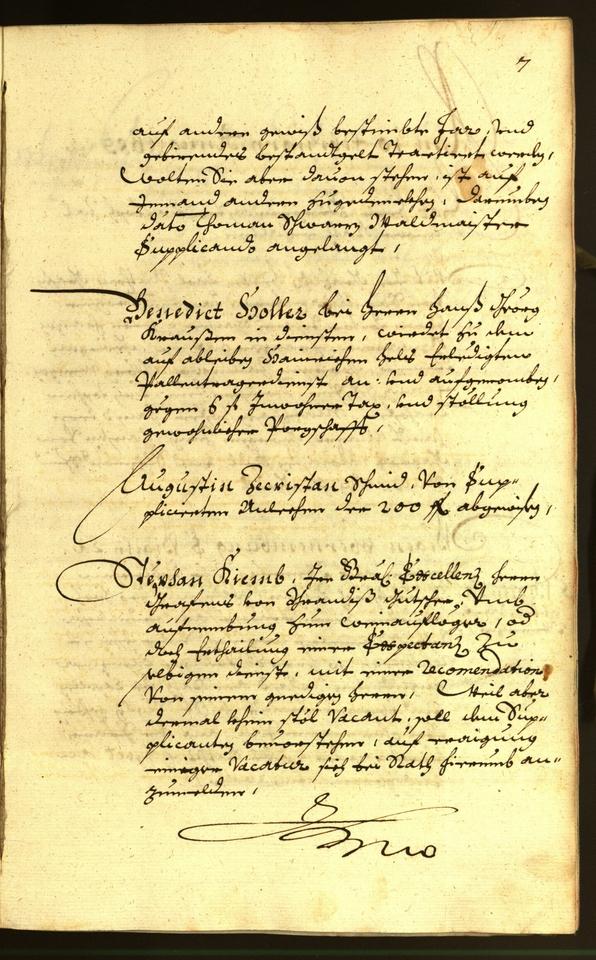 7
auf andere gewiß bestimbte Jar, und
gebirendes bestandtgelt Tractiert werden,
Wolten Sie aber davon stehen, ist auf
Jemand andern zugedenckhen, darumben
dato Thoman Schwarz Waldmaister
Supplicando angelangt,
Benedict Holler bei Herrn Hanß Georg
Kraußen in diensten, wirdet zu dem
auf ableiben Hainrichen Erledigten
Pallentragerdienst an- und aufgenomben,
gegen 6 f Inwohner Tax, und stöllung
gewohnlicher Porgschafft,
Augustin Schmid, von Sup-
plicierten Anlechen der 200 f abgewisen,
Stephan Kiemb, Ihr Excellenz Herrn
Grafens von Gutscher, Umb
aufnembung zum od
doch Erthailung einer Exspectanz zu
selbigen dienst, mit einer Recomendation
von seinem gnedigen Herrn, Weil aber
dermal khein stöl Vacant, soll dem Sup-
plicanten bevorstehen, auf eraigung
einiger Vacatur sich bei Rath hierumb an-
zumelden,